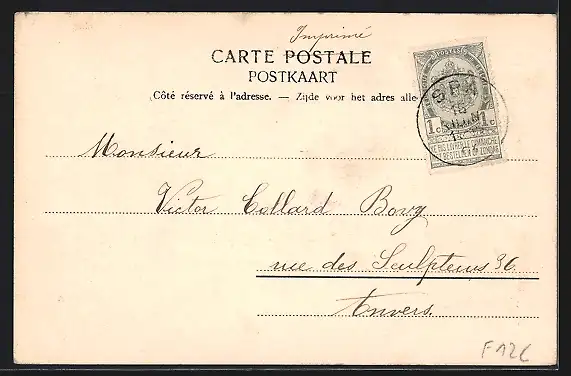 Imprimé
CARTE POSTALE
POSTKAART
Côté réservé à l'adresse. — Zijde voor het adres alle
POSTES
SPA
1c 1c
NE PAS LIVRER LE DIMANCHE
BESTELLEN OP ZONDAG
Monsieur
Victor Collard Bovy
rue des Sculpteurs 36
Anvers
F12C